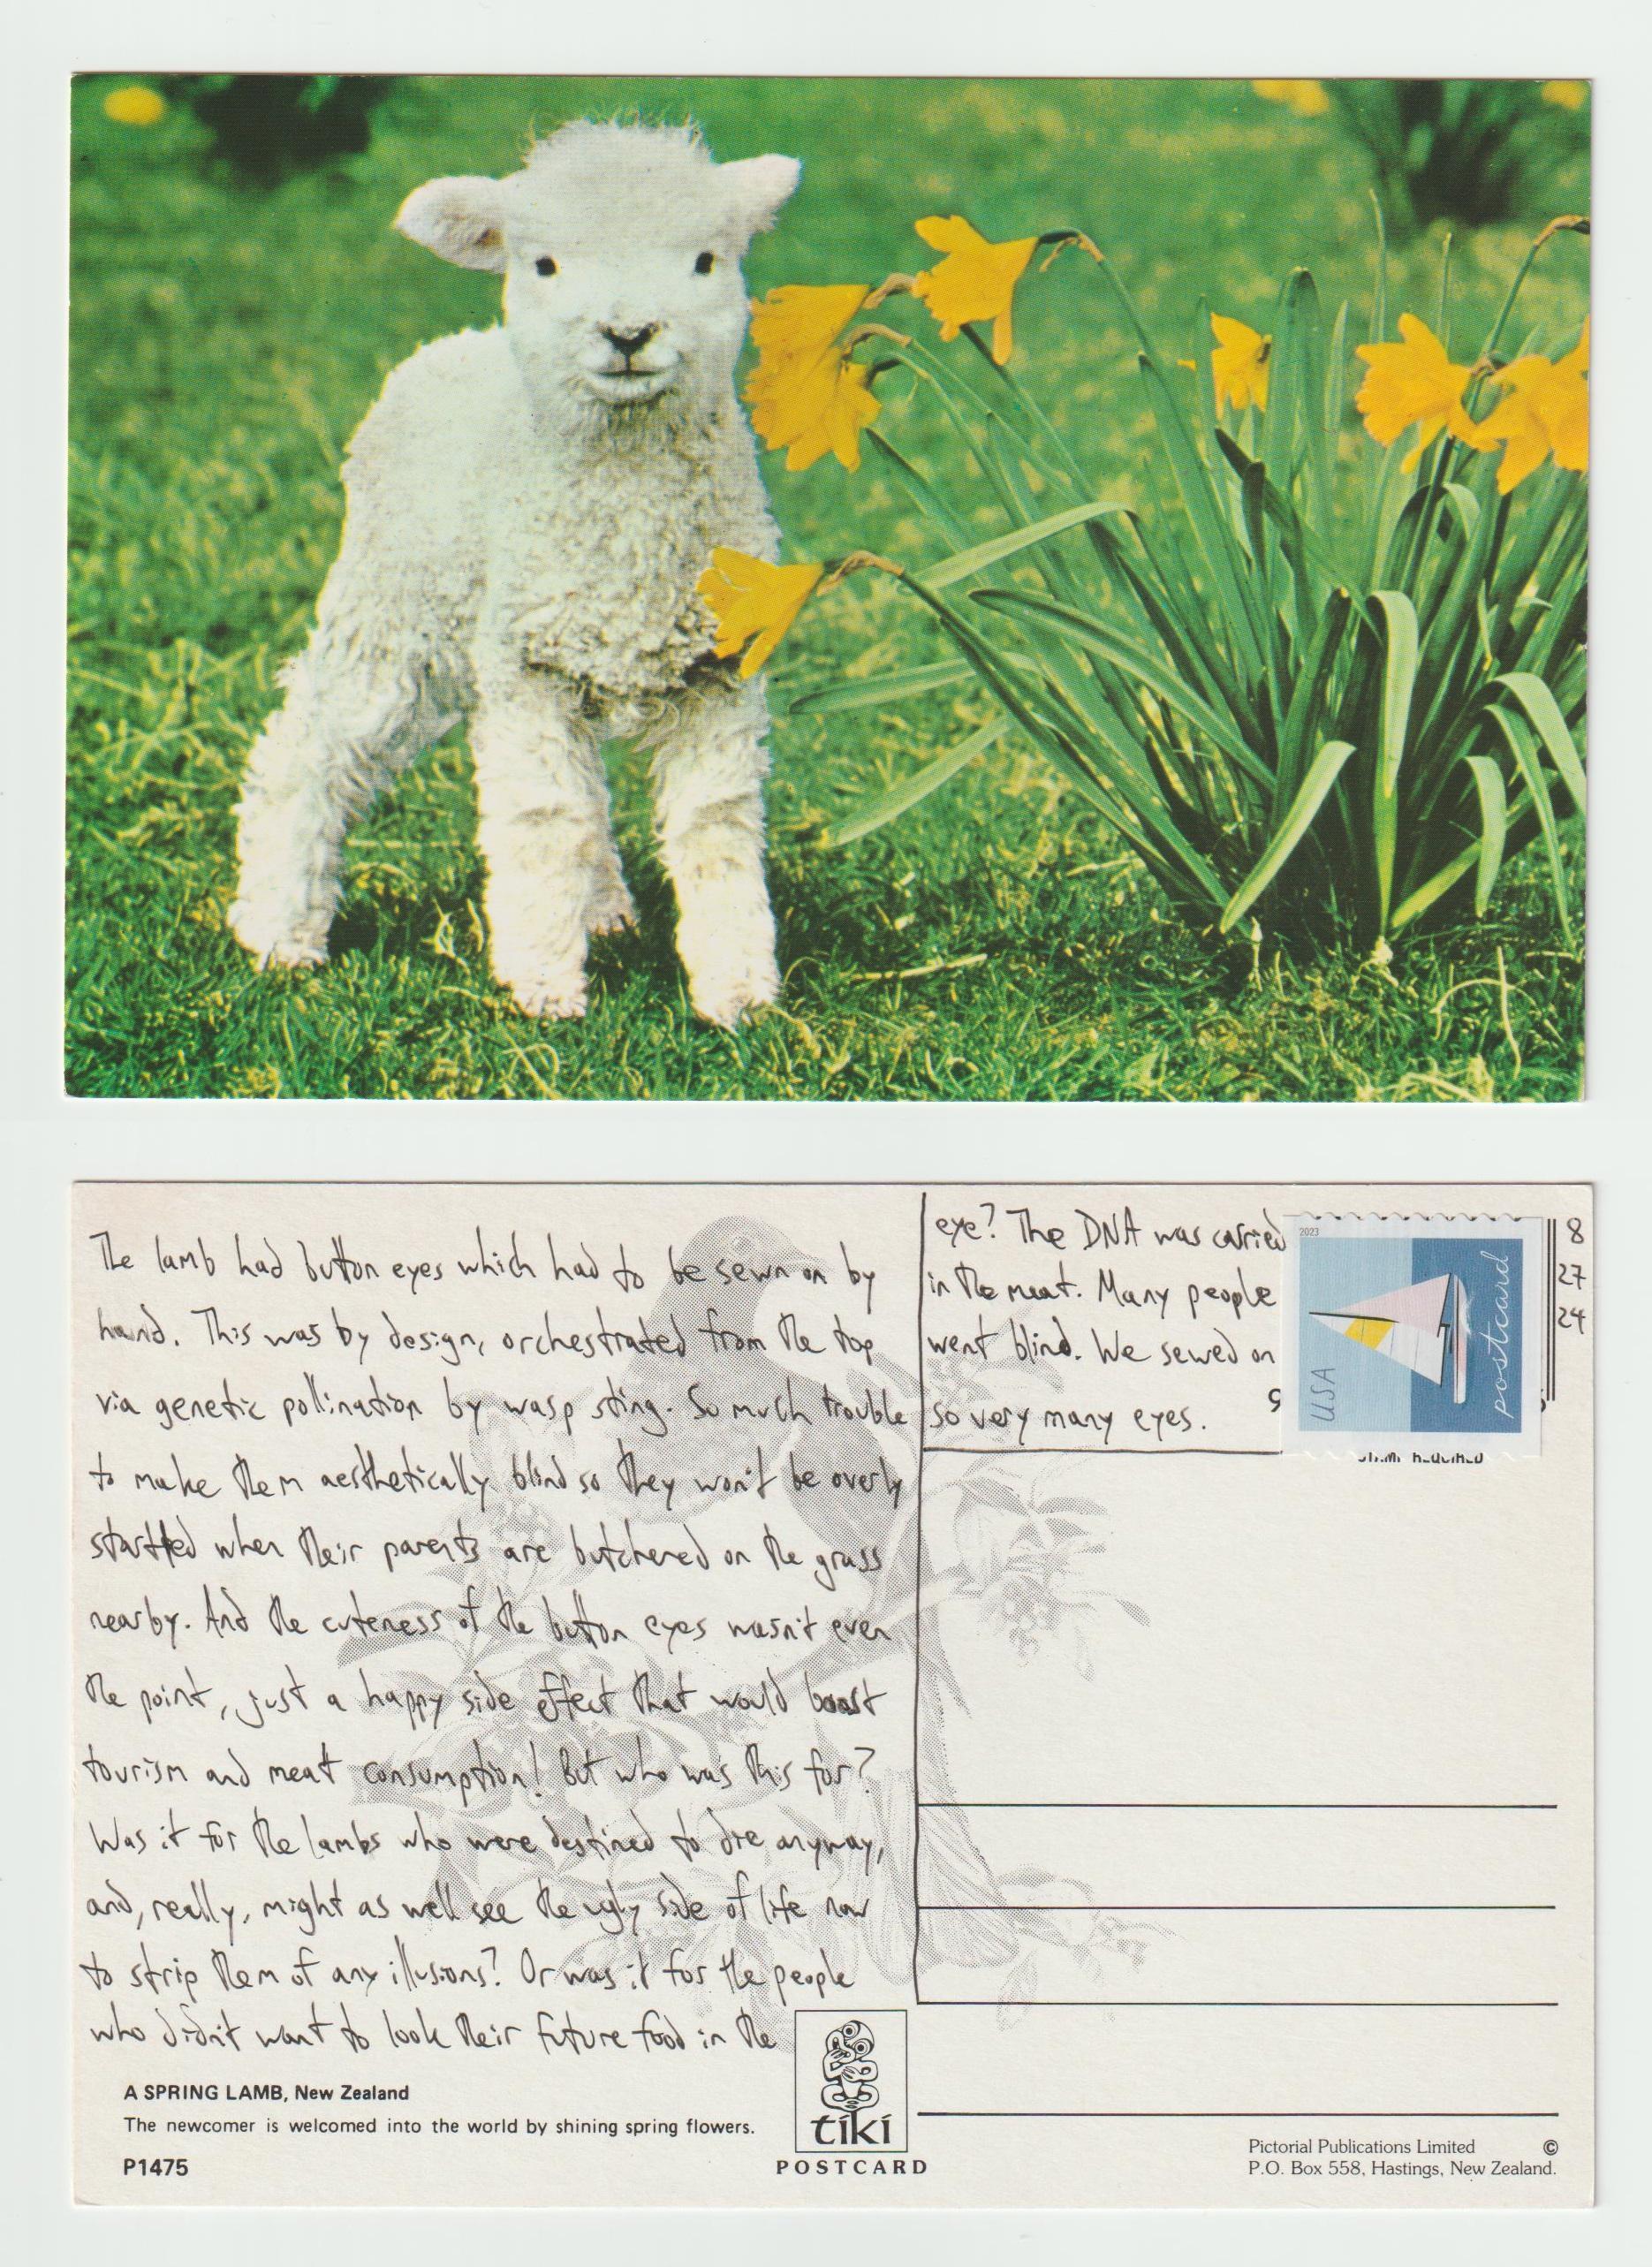 The lamb had button eyes which had to be sewn on by
hand. This was by design, orchestrated from the top
via genetic pollination by wasp sting. So much trouble
to make them aesthetically blind so they won't be overly
startled when their parents are butchered on the grass
nearby. And the cuteness of the button eyes wasn't even
the point, just a happy side effect that would boost
tourism and meat consumption! But who was this for?
Was it for the lambs who were destined to die anyway,
and, really, might as well see the ugly side of life now
to strip them of any illusions? Or was it for the people
who didn't want to look their future food in the
eye? The DNA was carried
in the meat. Many people
went blind. We sewed on
so very many eyes.
8
27
24
2023
USA
postcard
A SPRING LAMB, New Zealand
The newcomer is welcomed into the world by shining spring flowers.
P1475
tiki
POSTCARD
Pictorial Publications Limited ©
P.O. Box 558, Hastings, New Zealand.